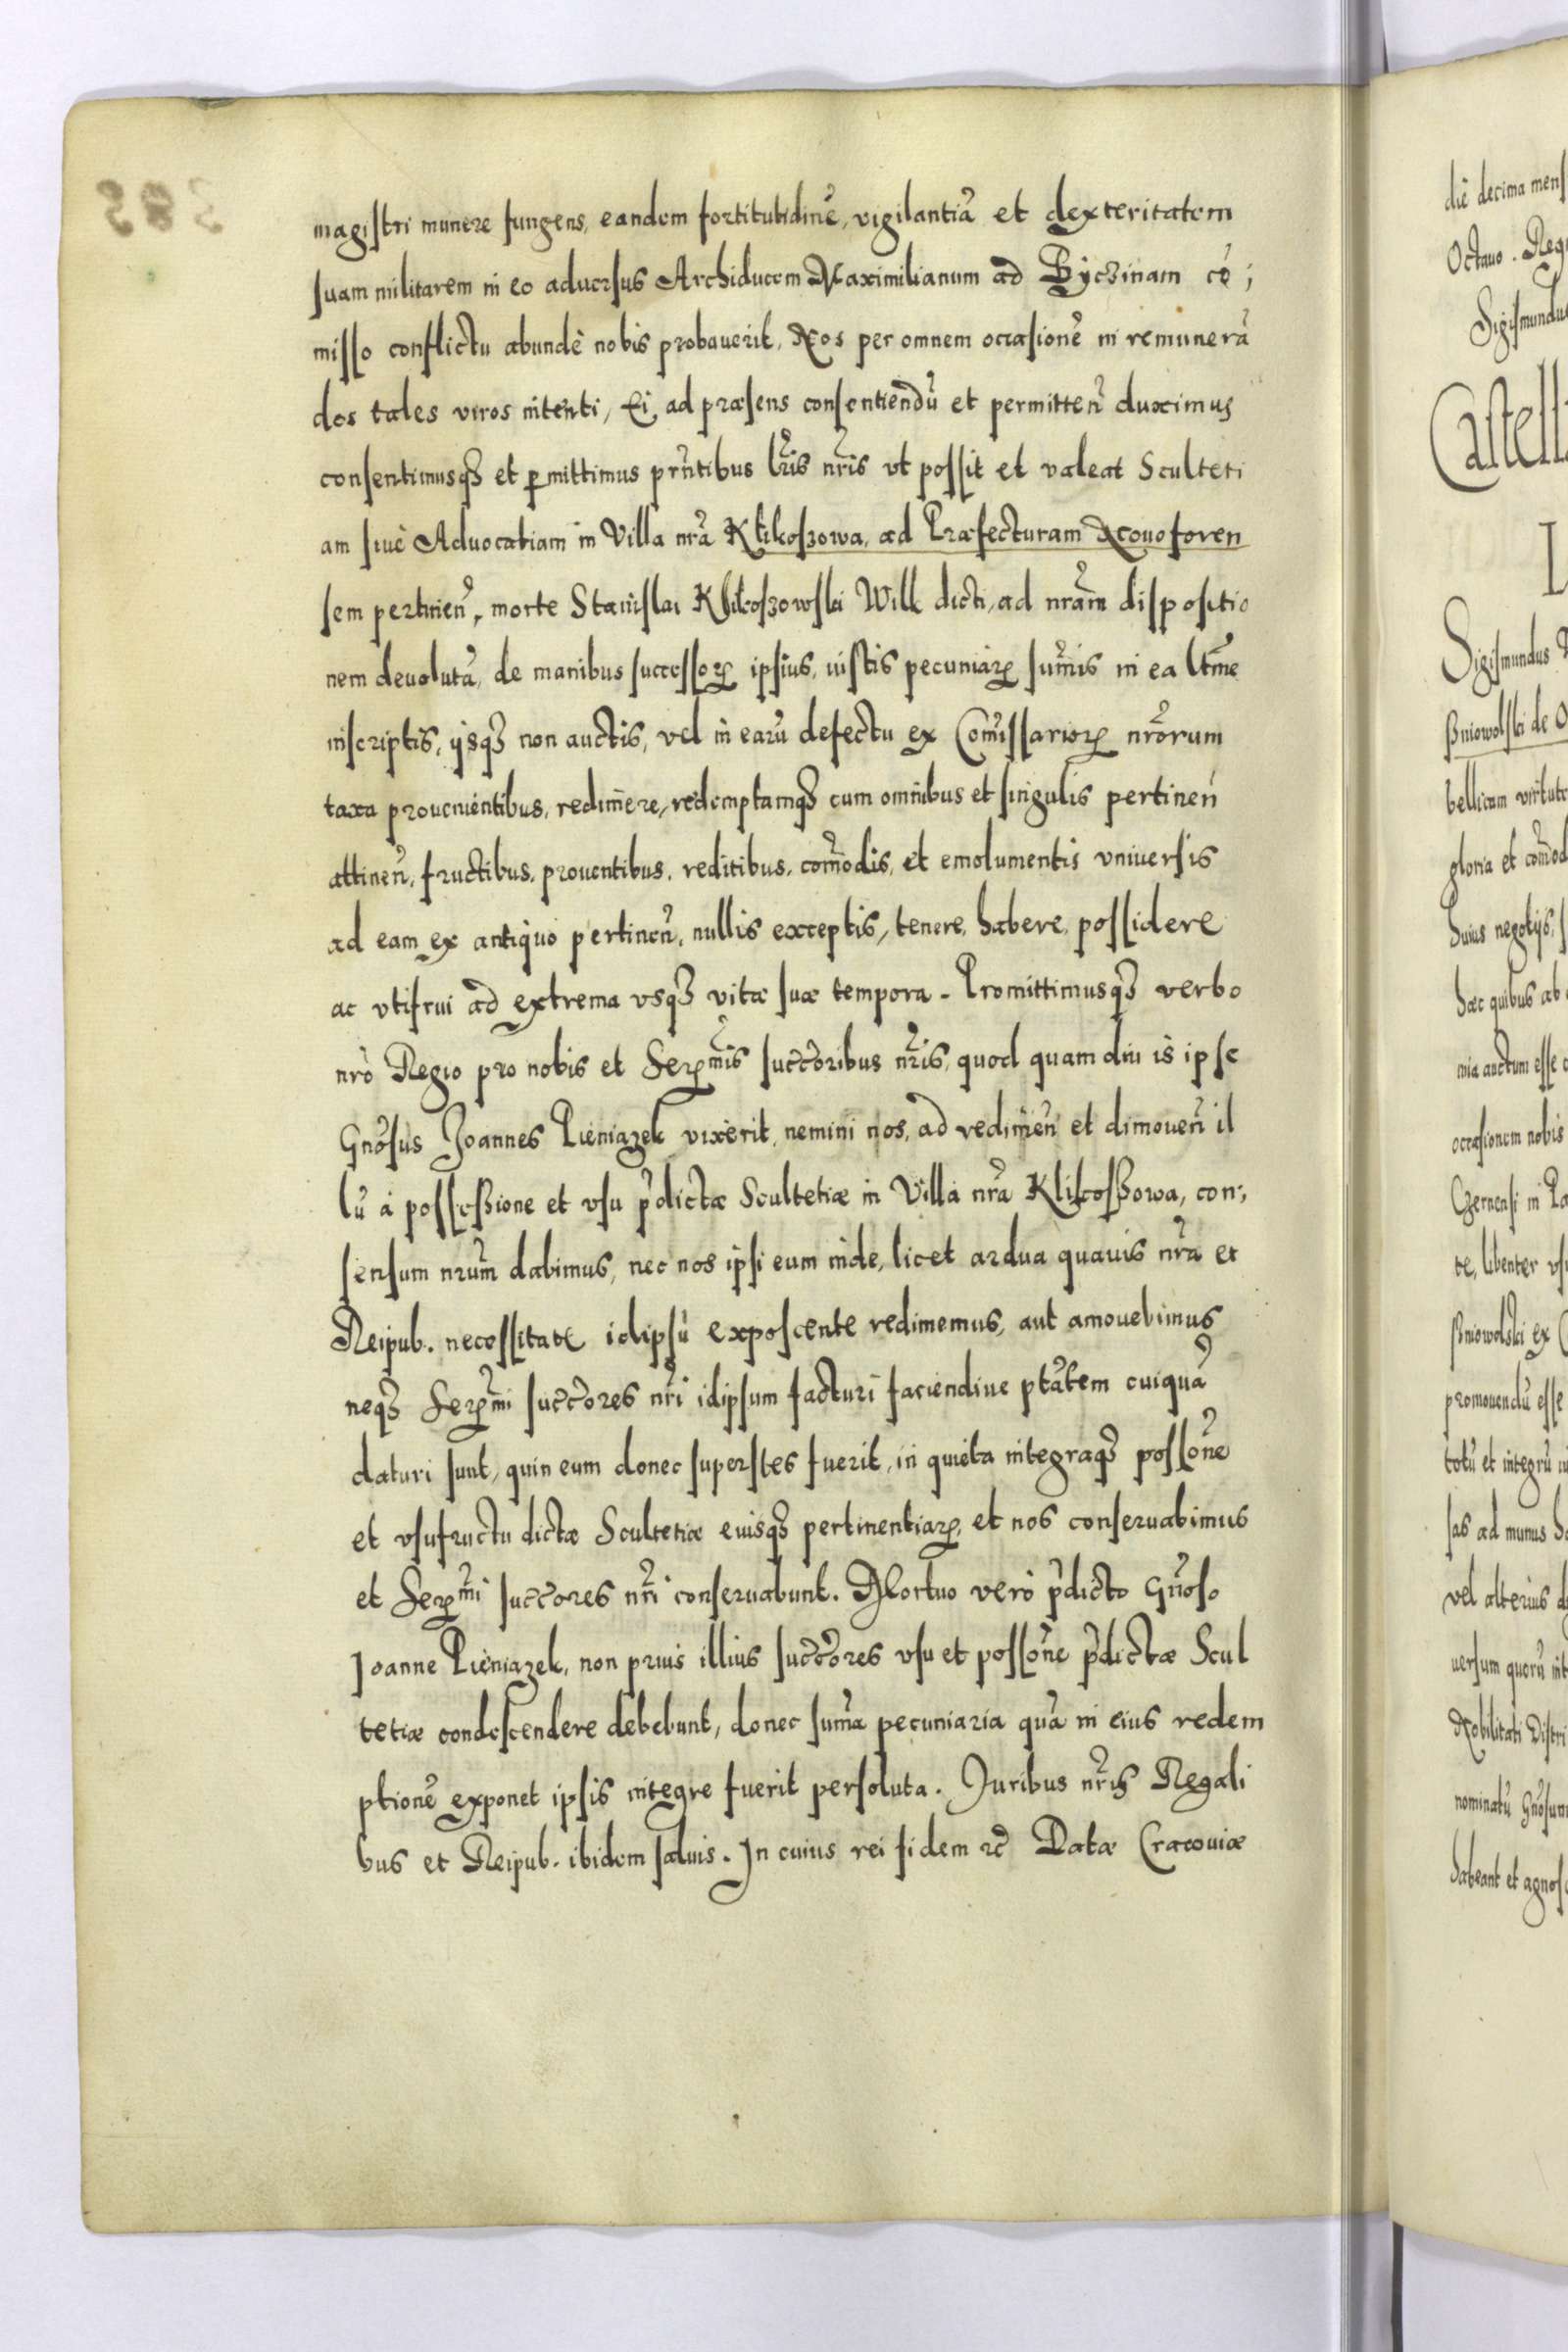 magistri munere fungens, eandem fortitutidinē, vigilantiā et dexteritatem
suam militarem in eo aduersus Archiducem Maximilianum ad Byczinam cō;
misso conflictu abundè nobis probauerit, Nos per omnem occasionē in remunerā
dos tales viros intenti, Ei ad præsens consentiendū et permitten̄ duximus
consentimusqȝ et ꝑmittimus prn̄tibus lr̄is nr̄is vt possit et valeat Sculteti
am siuè Aduocatiam in Villa nrā Klikoszowa, ad Præfecturam Nouoforen
sem pertinen̄, morte Stanislai Klikoszowski Wilk dicti, ad nrām dispositio
nem deuolutā, de manibus successoꝝ ipsius, iustis pecuniaꝝ sum̄is in ea ltm̄e
inscriptis, ijsqȝ non auctis, vel in earū defectu ex Com̄issarioꝝ nrōrum
taxa prouenientibus, redimere, redemptamqȝ cum omnibus et singulis pertinen̄
attinen̄, fructibus, prouentibus, reditibus, com̄odis, et emolumentis vniuersis
ad eam ex antiquo pertinen̄, nullis exceptis, tenere, habere, possidere
ac vtifrui ad extrema vsqȝ vitæ suæ tempora. Promittimusqȝ verbo
nrò Regio pro nobis et Serꝝmis succ̄oribus nr̄is, quod quam diu is ipse
Gnōsus Joannes Pieniazek vixerit, nemini nos, ad redimen̄ et dimouen̄ il
lū à possessione et vsu p̄dictæ Scultetiæ in Villa nrā Klikoszowa, con:,
sensum nrūm dabimus, nec nos ipsi eum inde, licet ardua quauis nrā et
Reipub. necessitate idipsū exposcente redimemus, aut amouebimus
neqȝ Serꝝmi succ̄ores nr̄i idipsum facturi faciendiue ptātem cuiquā
daturi sunt, quin eum donec superstes fuerit, in quieta integraqȝ possōne
et vsufructu dictæ Scultetiæ eiusqȝ pertinentiaꝝ, et nos conseruabimus
et Serꝝmi succ̄ores nr̄i conseruabunt. Mortuo verò p̄dicto Gnōso
Joanne Pieniazek, non prius illius succ̄ores vsu et possōne p̄dictæ Scul
tetiæ condescendere debebunt, donec sum̄a pecuniaria quā in eius redem
ptionē exponet ipsis integre fuerit persoluta. Juribus nr̄is Regali
bus et Reipub. ibidem saluis. In cuius rei fidem ꝛc̄ Datæ Cracouiæ
diē decima mens
Octauo. Reg
Sigismundus
Castell
L
Sigismundus
sniowolski de O
bellicam virtute
gloria et com̄od
huius negotijs,
hæc quibus ab
mia auctum esse
occasionem nobis
Czernensi in Pa
te, libenter vs
sniowolski ex
promouendū esse
totū et integrū in
sas ad munus h
vel alterius d
uersum quorū int
Nobilitati Distri
nominatū Gnōsum
habeant et agnos